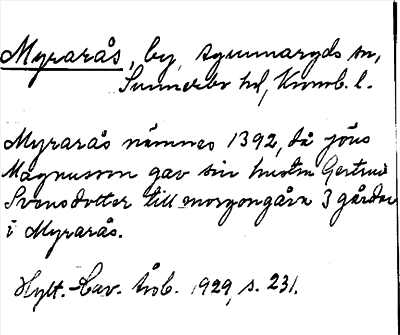 Myrarås, by, Agunnaryds sn,
Sunnerbo hd, Kronob. l.
Myrarås nämnes 1392, då Jöns
Magnusson gav sin hustru Gertrud
Svensdotter till morgongåva 3 gårdar
i Myrarås.
Hylt.-Cav. årsb. 1929, s. 231.